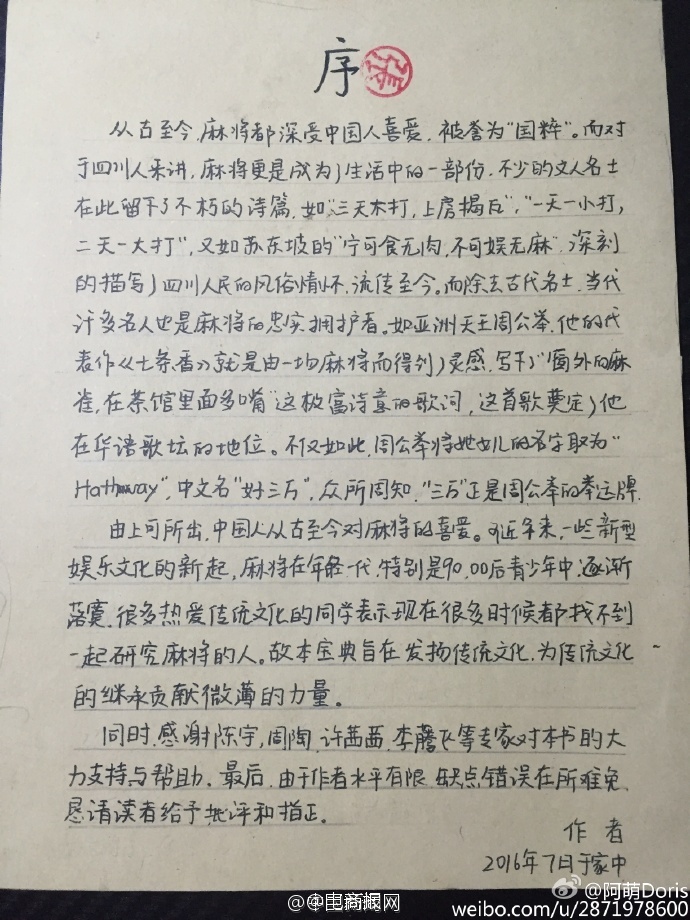 序
从古至今,麻将都深受中国人喜爱,被誉为"国粹"。而对
于四川人来讲,麻将更是成为了生活中的一部份,不少的文人名士
在此留下了不朽的诗篇,如"三天不打,上房揭瓦","一天一小打,
二天一大打",又如苏东坡的"宁可食无肉,不可娱无麻",深刻
的描写了四川人民的风俗情怀,流传至今。而除去古代名士,当代
许多名人也是麻将的忠实拥护者。如亚洲天王周公举,他的代
表作《七条香》就是由一场麻将而得到了灵感,写下了"窗外的麻
雀,在茶馆里面多嘴"这极富诗意的歌词,这首歌奠定了他
在华语歌坛的地位。不仅如此,周公举将她女儿的名字取为"
Hathaway",中文名"好三万",众所周知,"三万"正是周公举的幸运牌.
由上可所出,中国人从古至今对麻将的喜爱。可近年来,一些新型
娱乐文化的新起,麻将在年轻一代,特别是90,00后青少年中,逐渐
落寞,很多热爱传统文化的同学表示现在很多时候都找不到
一起研究麻将的人。故本宝典旨在发扬传统文化,为传统文化
的继承贡献微薄的力量。
同时,感谢陈宇,周陶,许茜茜,李腾飞等专家对本书的大
力支持与帮助。最后,由于作者水平有限,缺点错误在所难免,
恳请读者给予批评和指正。
作者
2016年7日于家中
@阿萌Doris
weibo.com/u/2871978600